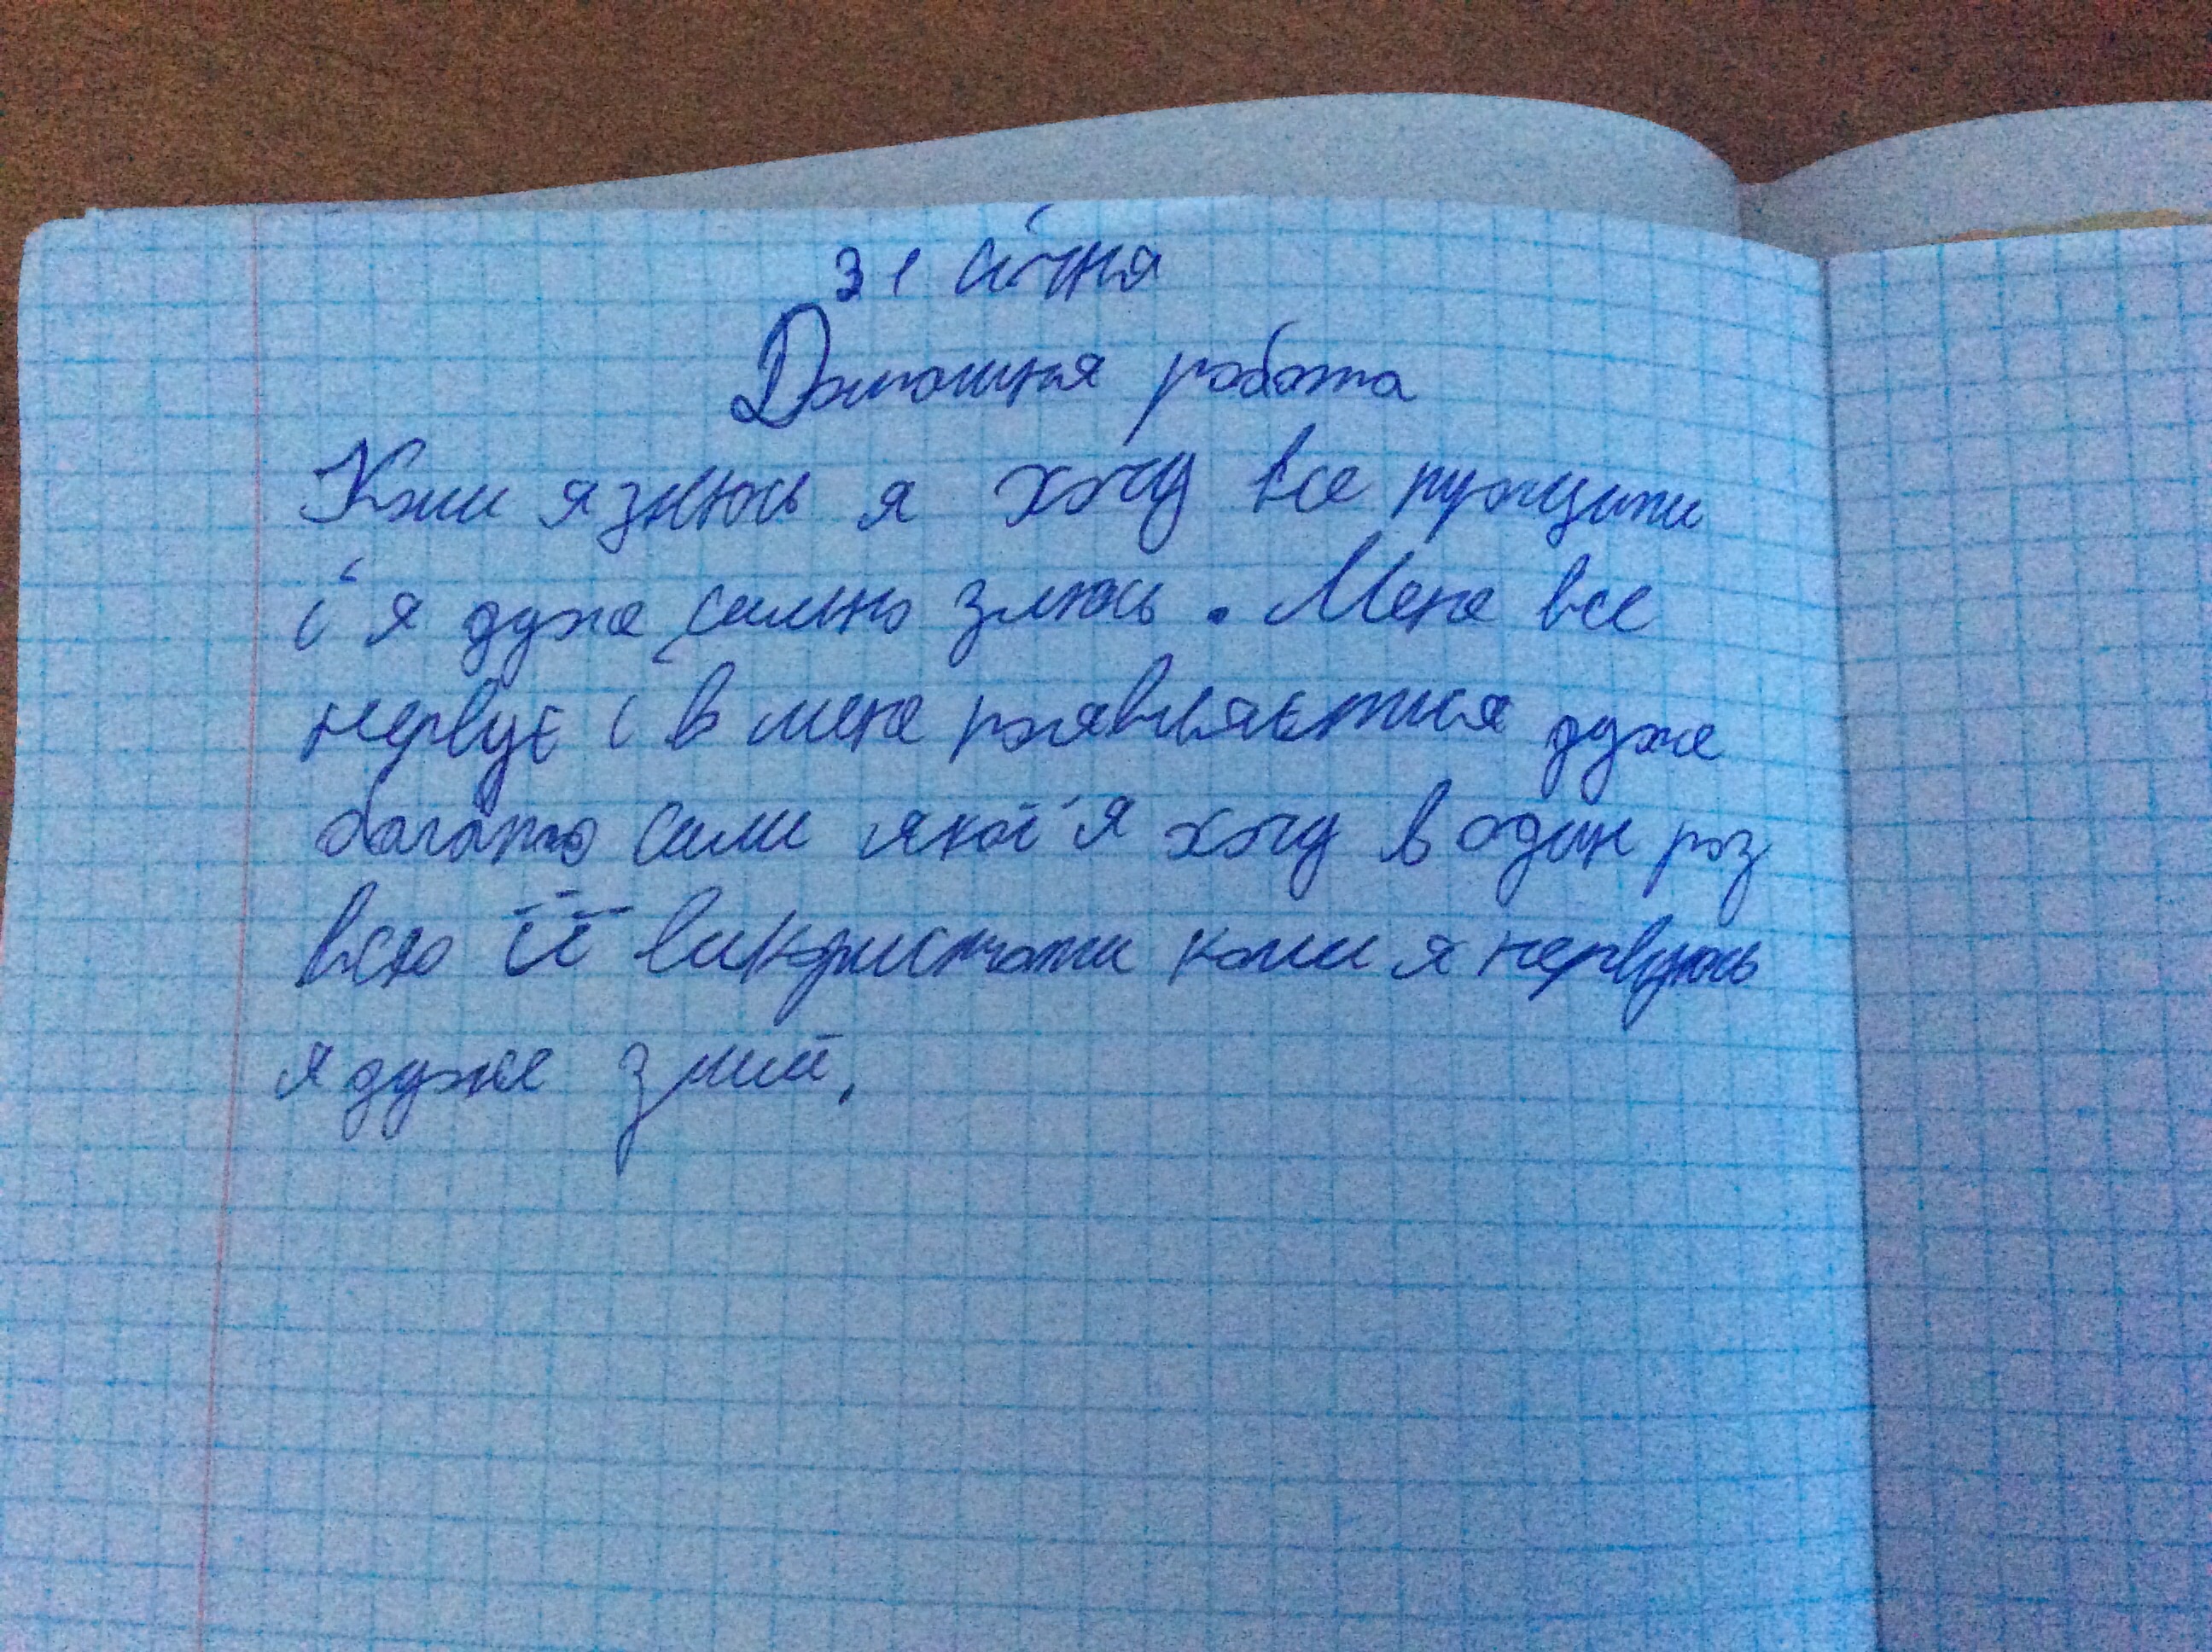 31 січня
Домашня робота
Коли я злюсь я хочу все
і я дуже сильно злюсь. Мене все
нервує і в мене появляється дуже
багато сили якої я хочу в один раз
всю її використати коли я нервуюсь
я дуже злий.